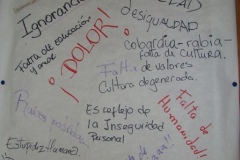 Ignorancia
desigualdad
Falta de educación
y amor
¡DOLOR!
cobardía-rabia-
falta de cultura.
Falta de valores
Cultura degenerada.
Es reflejo de
la Inseguridad
Personal
Falta de
Humanidad
Estupidez Humana